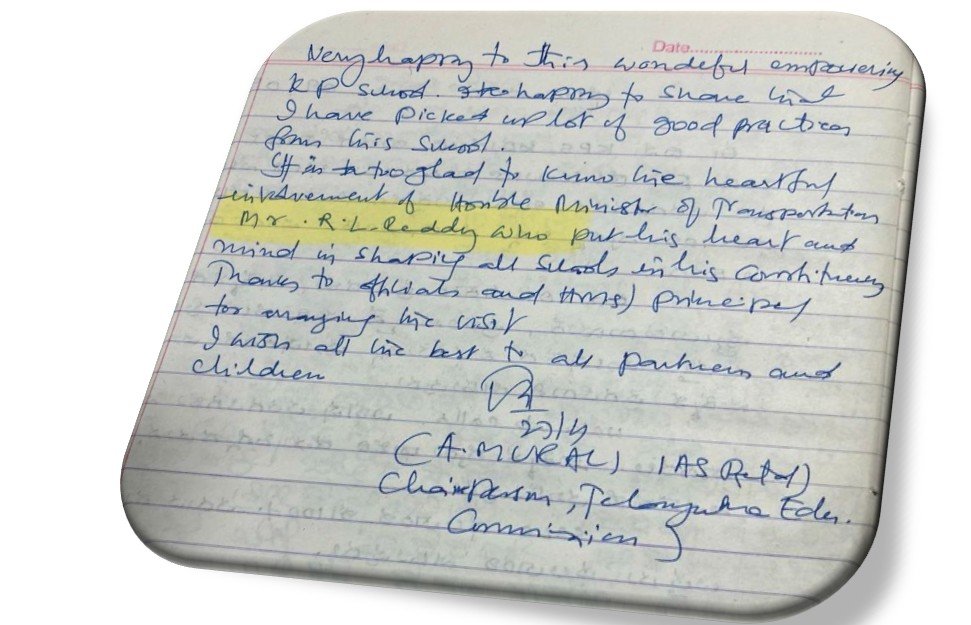 Date.............................
Very happy to this wondeful empowering
KP school. happy to share that
I have Picked up lot of good practices
from this school.
It is too glad to know the heartful
involvement of Honble Minister of Transportation
Mr. R.L. Reddy who put his heart and
mind in shaping all schools in his constituency
Thanks to officials and (HMs) principal
for arranging the visit
I wish all the best to all partners and
children
(A. MURALI IAS Retd)
Chairperson, Telangana Edn.
Commission